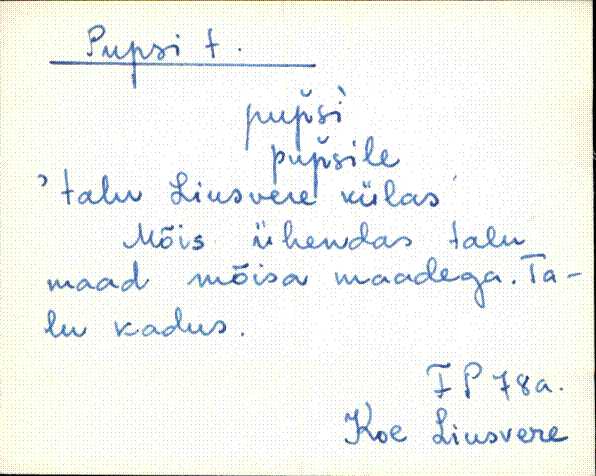 Pupsi t.
pup̆si`
pup̆sile
'talu Liusvere külas'
Mõis ühendas talu
maad mõisa maadega. Ta-
lu kadus.
F P 78a.
Koe Liusvere